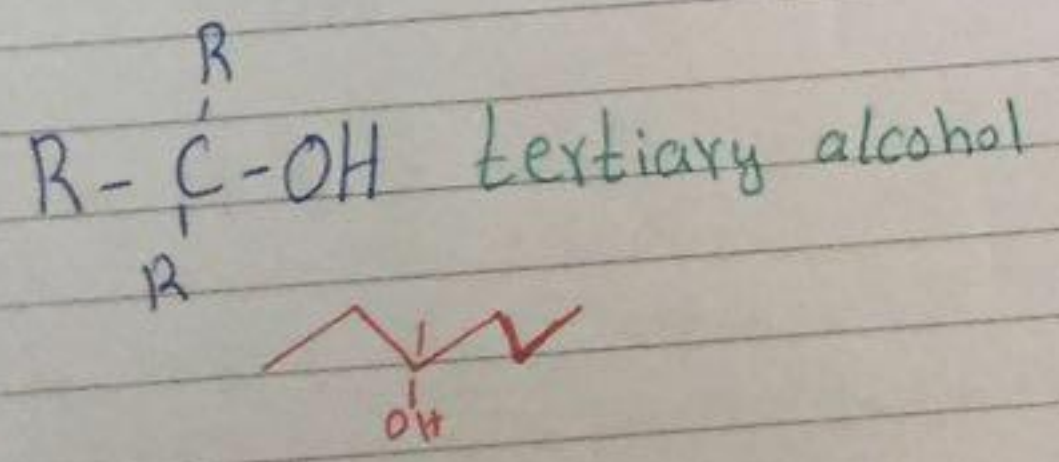 R
R - C - OH tertiary alcohol
R
OH